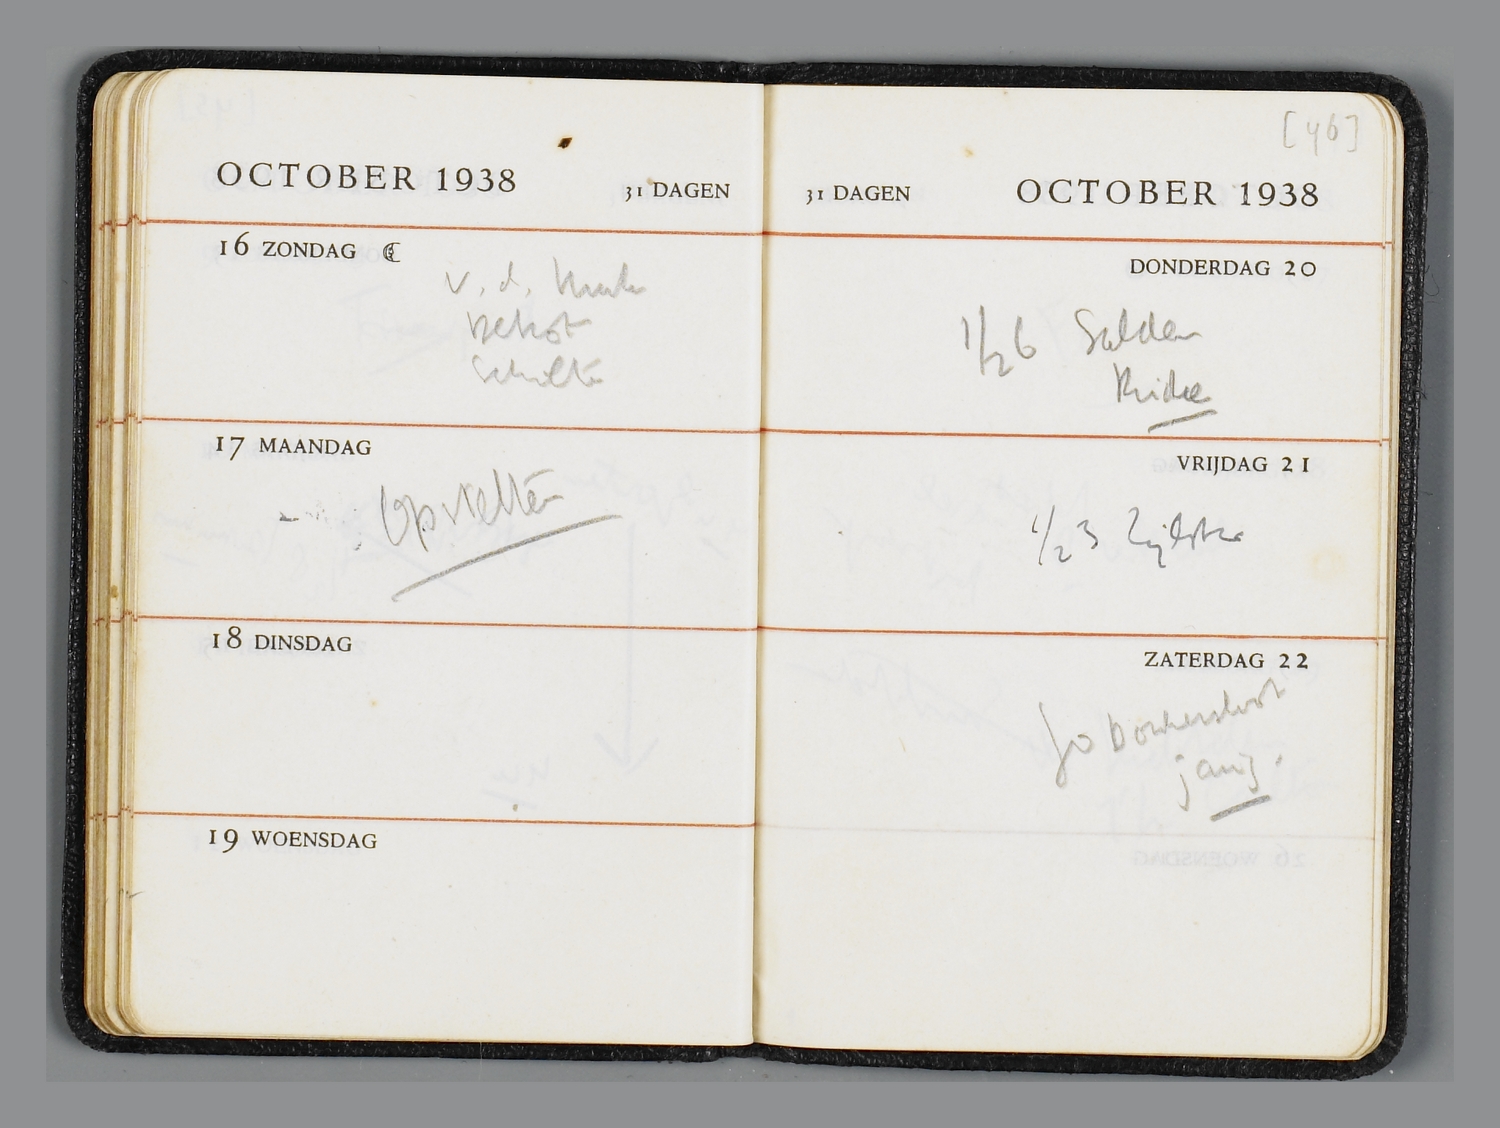 OCTOBER 1938
31 DAGEN
16 ZONDAG
v. d.
Schilte
17 MAANDAG
Opstelten
18 DINSDAG
19 WOENSDAG
[46]
31 DAGEN
OCTOBER 1938
DONDERDAG 20
1/2 6 Salden
VRIJDAG 21
1/2 3 Zijlstra
ZATERDAG 22
Jo
jarig.